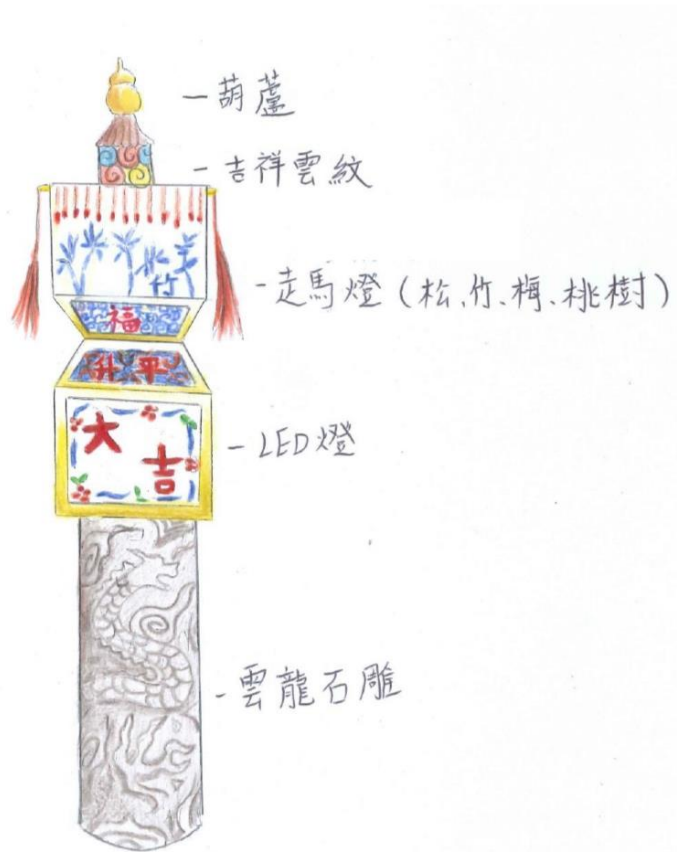 葫蘆
吉祥雲紋
走馬燈(松、竹、梅、桃樹)
福
升平
LED燈
大吉
雲龍石雕